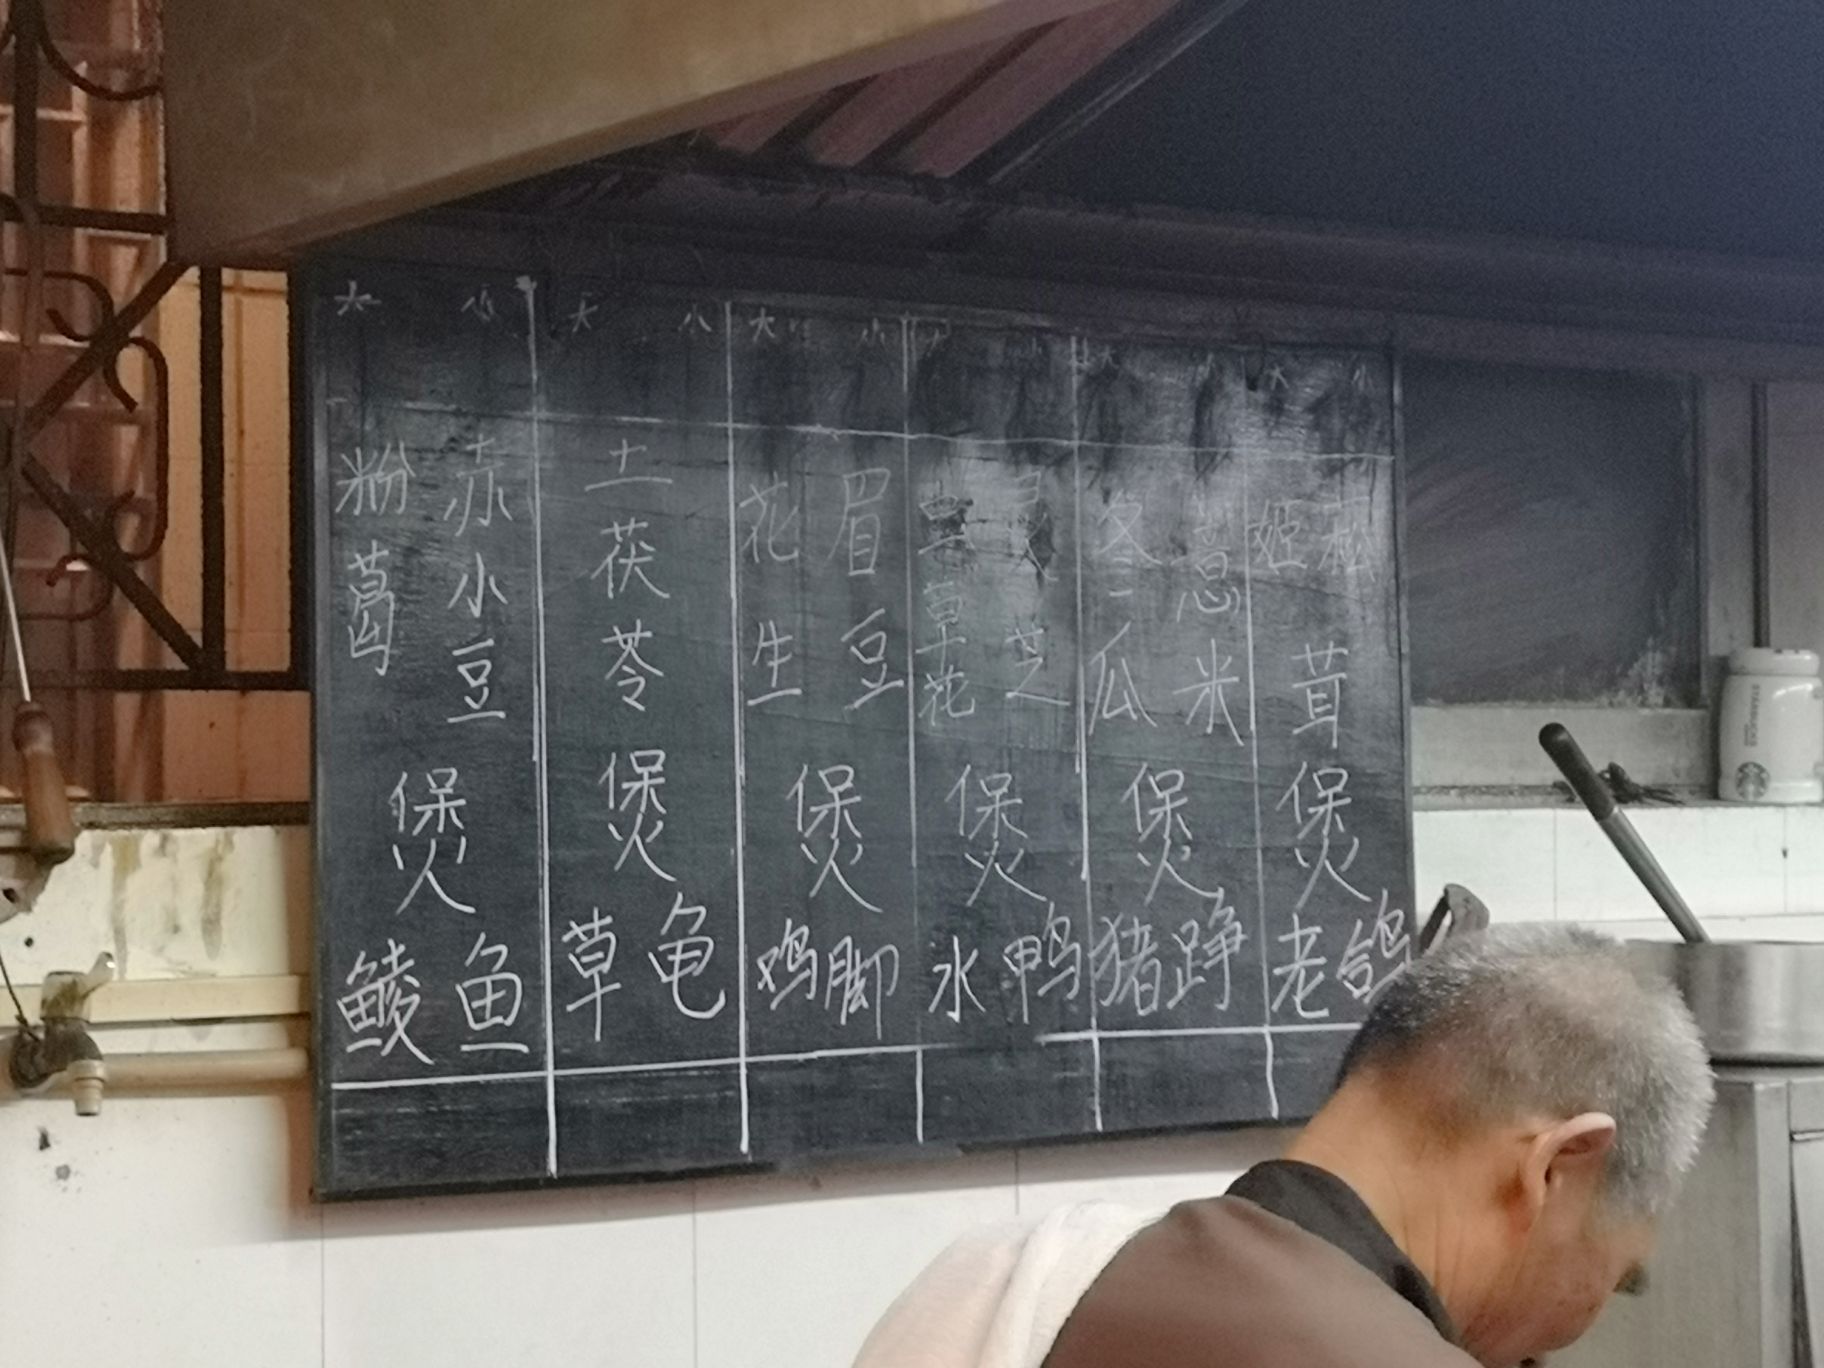 大 小
粉葛
赤小豆
煲
鲮鱼
大 小
土茯苓
煲
草龟
大 小
花生
眉豆
煲
鸡脚
大 小
虫草花
灵芝
煲
水鸭
大 小
冬瓜
薏米
煲
猪踭
大 小
姬松
茸
煲
老鸽
STARBUCKS